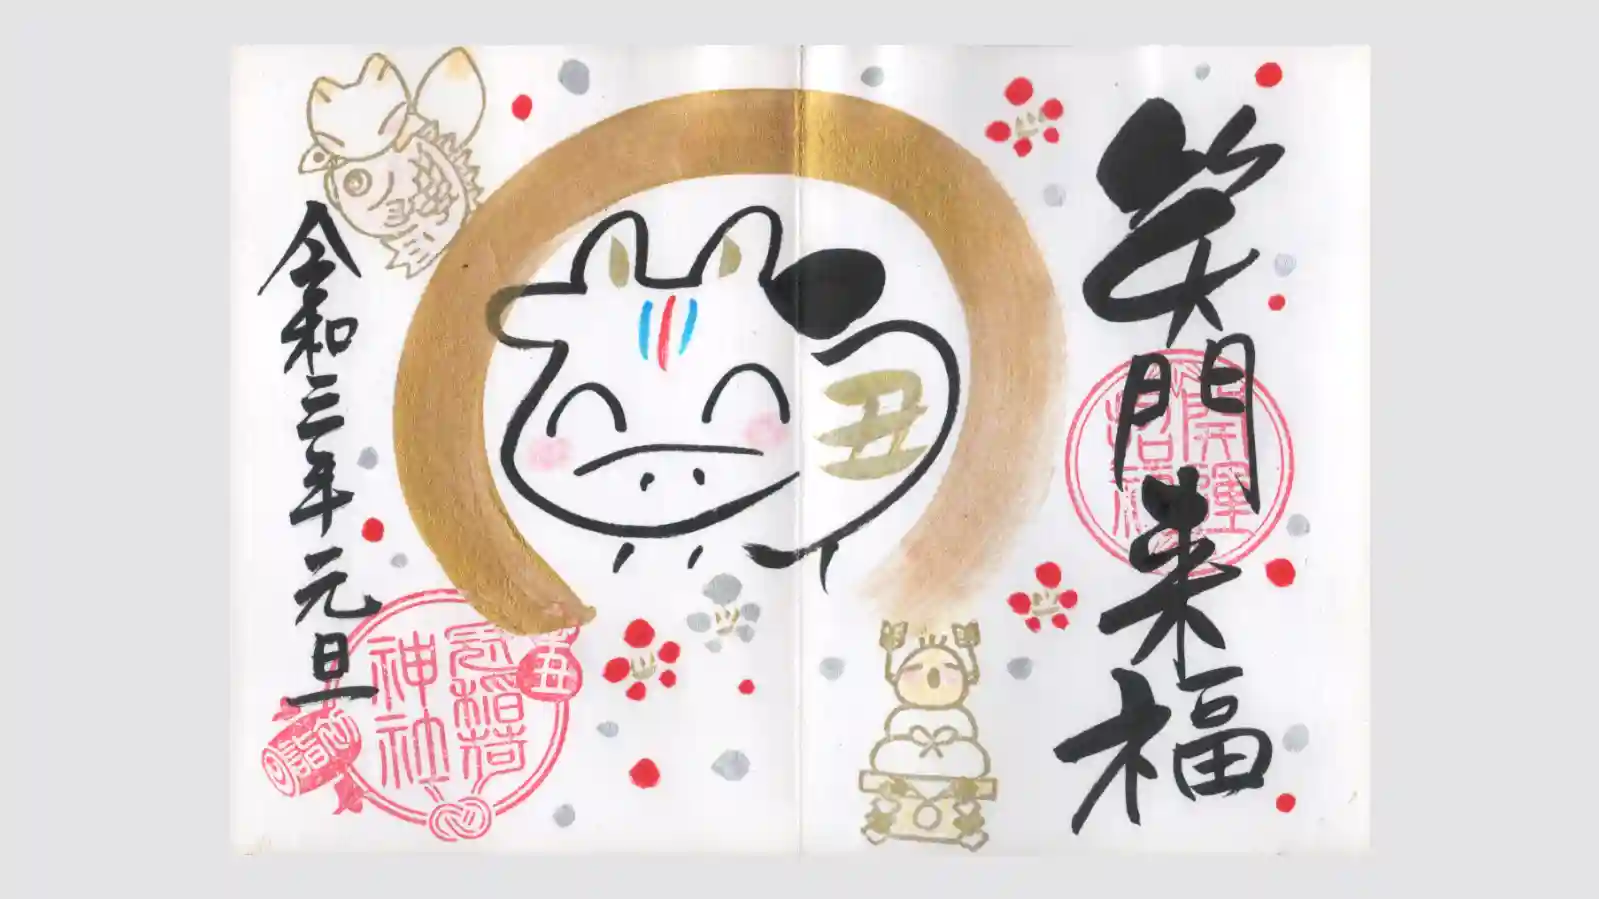 笑門来福
開運
招福
丑
令和三年元旦
稲荷
神社
丑
初詣